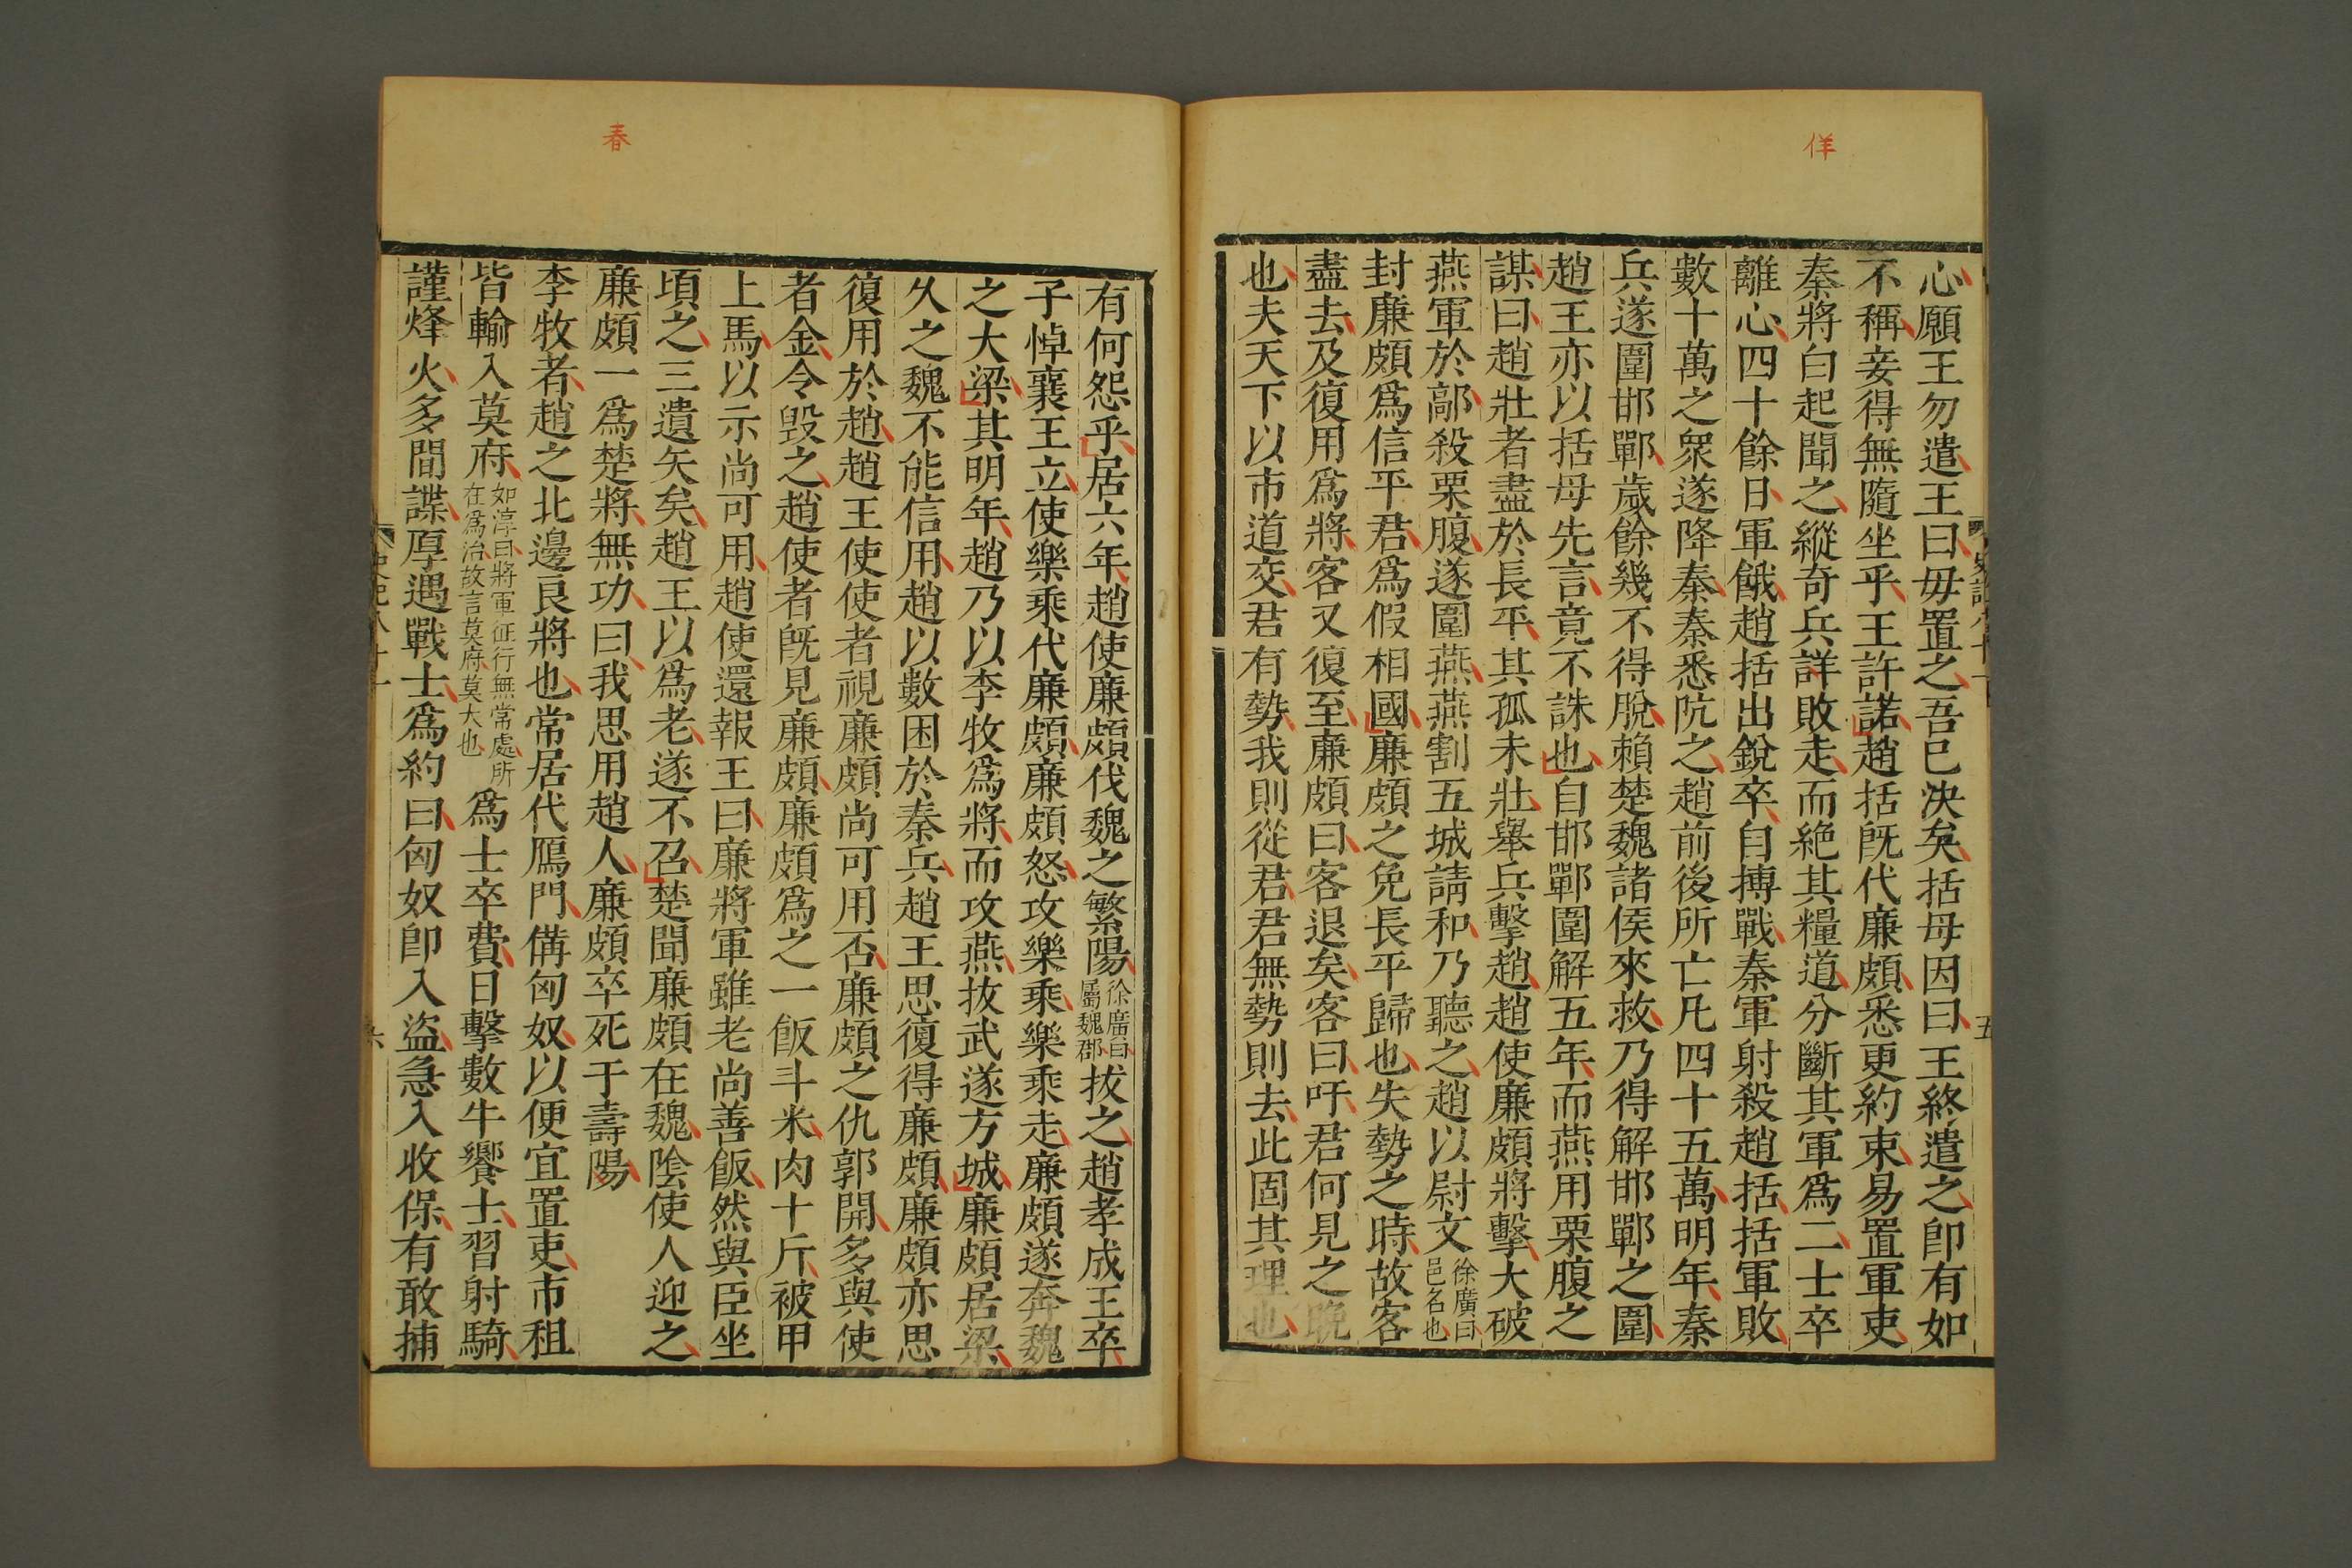 佯
心願王勿遣王曰毋置之吾已決矣括母因曰王終遣之卽有如
不稱妾得無隨坐乎王許諾趙括旣代廉頗悉更約束易置軍吏
秦將白起聞之縱奇兵詳敗走而絕其糧道分斷其軍爲二士卒
離心四十餘日軍餓趙括出銳卒自搏戰秦軍射殺趙括括軍敗
數十萬之衆遂降秦秦悉阬之趙前後所亡凡四十五萬明年秦
兵遂圍邯鄲歲餘幾不得脫賴楚魏諸侯來救乃得解邯鄲之圍
趙王亦以括母先言竟不誅也自邯鄲圍解五年而燕用栗腹之
謀曰趙壯者盡於長平其孤未壯舉兵擊趙趙使廉頗將擊大破
燕軍於鄗殺栗腹遂圍燕燕割五城請和乃聽之趙以尉文徐廣曰邑名也
封廉頗爲信平君爲假相國廉頗之免長平歸也失勢之時故客
盡去及復用爲將客又復至廉頗曰客退矣客曰吁君何見之晚
也夫天下以市道交君有勢我則從君君無勢則去此固其理也
五
春
有何怨乎居六年趙使廉頗伐魏之繁陽徐廣曰屬魏郡拔之趙孝成王卒
子悼襄王立使樂乘代廉頗廉頗怒攻樂乘樂乘走廉頗遂奔魏
之大梁其明年趙乃以李牧爲將而攻燕拔武遂方城廉頗居梁
久之魏不能信用趙以數困於秦兵趙王思復得廉頗廉頗亦思
復用於趙趙王使使者視廉頗尚可用否廉頗之仇郭開多與使
者金令毀之趙使者旣見廉頗廉頗爲之一飯斗米肉十斤被甲
上馬以示尚可用趙使還報王曰廉將軍雖老尚善飯然與臣坐
頃之三遺矢矣趙王以爲老遂不召楚聞廉頗在魏陰使人迎之
廉頗一爲楚將無功曰我思用趙人廉頗卒死于壽陽
李牧者趙之北邊良將也常居代鴈門備匈奴以便宜置吏市租
皆輸入莫府如淳曰將軍征行無常處所在爲治故言莫府莫大也爲士卒費日擊數牛饗士習射騎
謹烽火多間諜厚遇戰士爲約曰匈奴卽入盜急入收保有敢捕
史記八十一
六